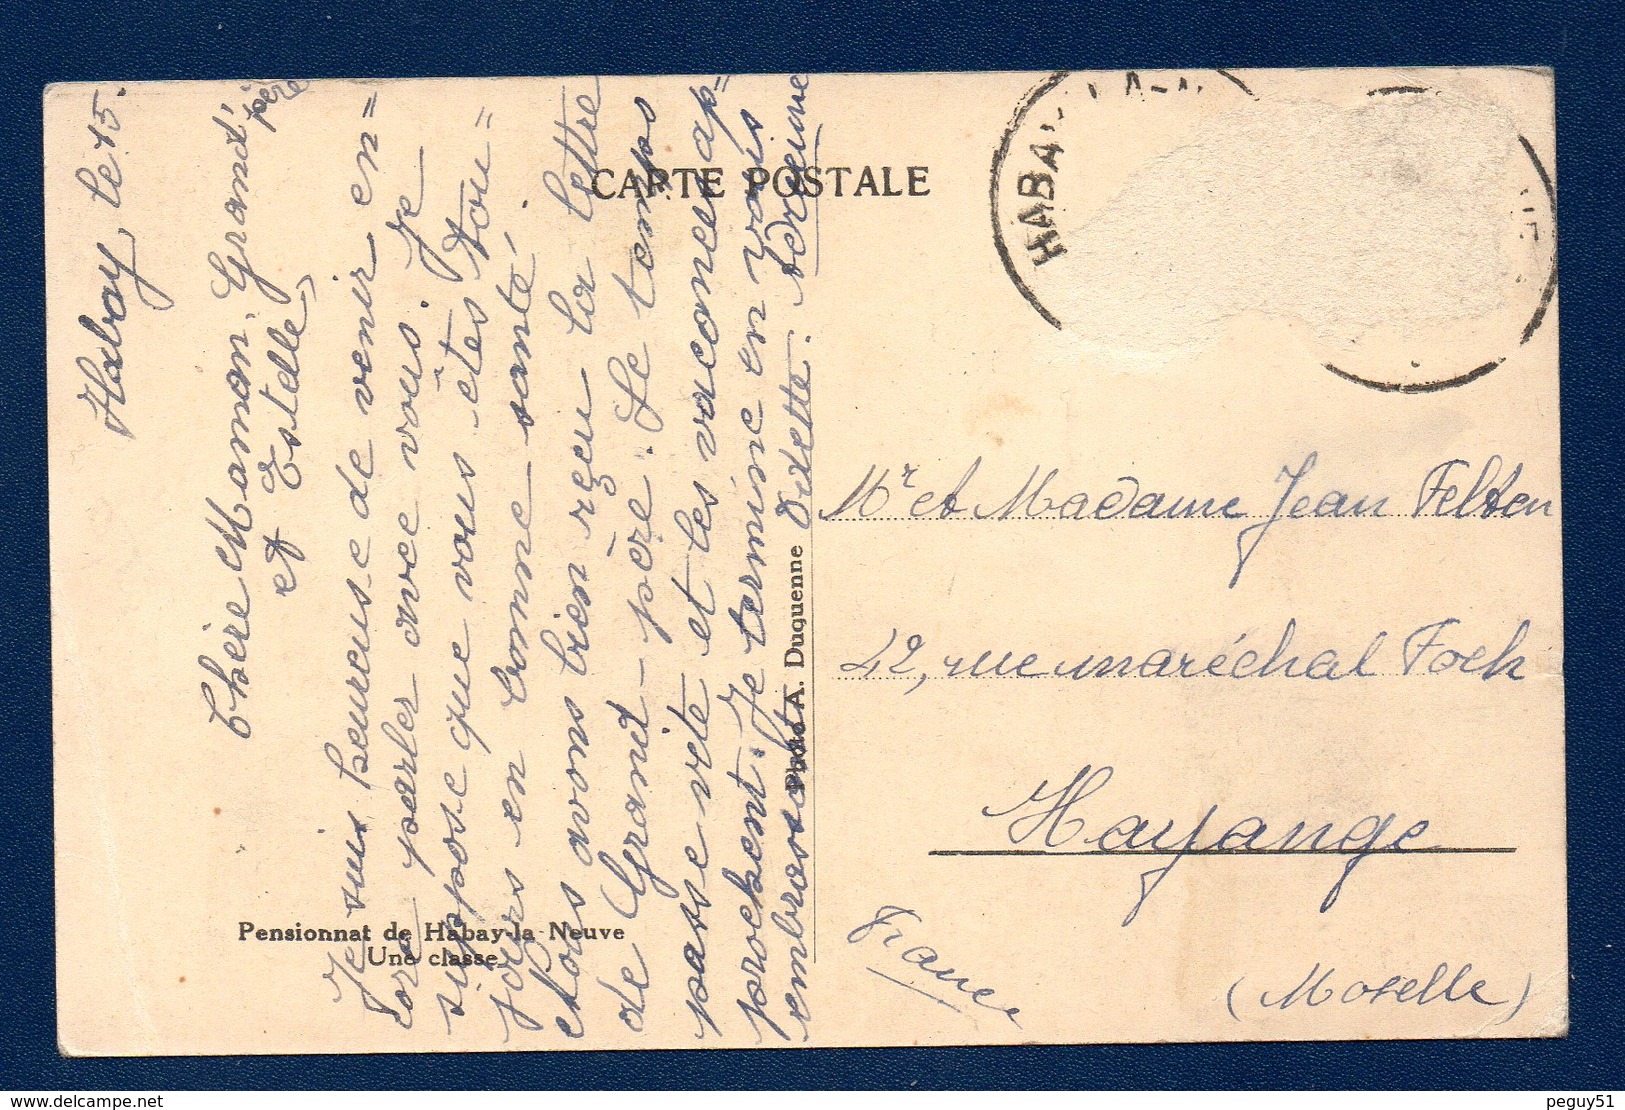 Habay, le 15.
Chère Maman, Grand'
père
et Estelle,
Je suis heureuse de venir en=
core parler avec vous. Je
suppose que vous êtes tou=
jours en bonne santé.
Nous avons bien reçu la lettre
de Grand-père. Le temps
passe vite et les vacances ap=
prochent. Je termine en vous
embrassant. Odette. Adrienne
CARTE POSTALE
Photo A. Duquenne
Pensionnat de Habay-la-Neuve
Une classe.
HABAY-LA-N
Mr et Madame Jean Felten
42, rue maréchal Foch
Hayange
(Moselle)
France
delcampe.net
peguy51